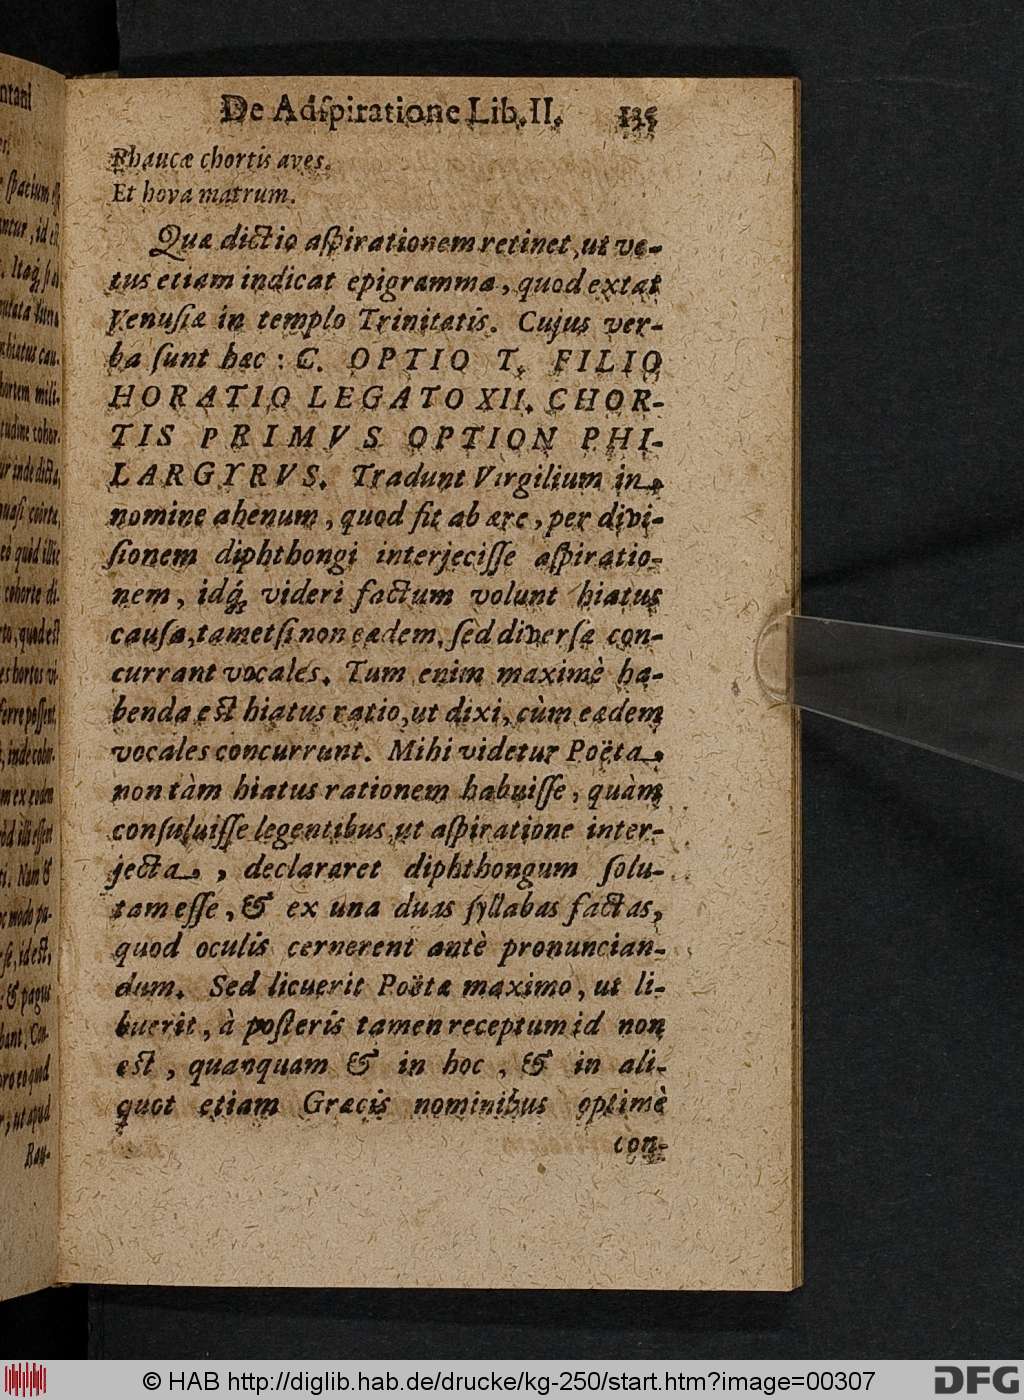 De Adſpiratione Lib. II. 135
Rhaucæ chortis aves.
Et hova matrum.
Quæ dictio aſpirationem retinet, ut ve-
tus etiam indicat epigramma, quod extat
Venuſiæ in templo Trinitatis. Cujus ver-
ba ſunt hæc: C. OPTIO T. FILIO
HORATIO LEGATO XII. CHOR-
TIS PRIMVS OPTION PHI-
LARGYRVS. Tradunt Virgilium in
nomine ahenum, quod fit ab ære, per divi-
ſionem diphthongi interjeciſſe aſpiratio-
nem, idq́; videri factum volunt hiatus
cauſa, tametſi non eædem, ſed diverſæ con-
currant vocales. Tum enim maximè ha-
benda eſt hiatus ratio, ut dixi, cùm eædem
vocales concurrunt. Mihi videtur Poëta,
non tàm hiatus rationem habuiſſe, quàm
conſuluiſſe legentibus, ut aſpiratione inter-
jecta, declararet diphthongum ſolu-
tam eſſe, & ex una duas ſyllabas factas,
quod oculis cernerent antè pronuncian-
dum. Sed licuerit Poëtæ maximo, ut li-
buerit, à poſteris tamen receptum id non
eſt, quanquam & in hoc, & in ali-
quot etiam Græcis nominibus optimè
con-
© HAB http://diglib.hab.de/drucke/kg-250/start.htm?image=00307
DFG